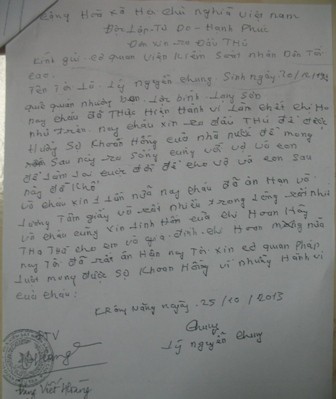 Cộng Hoà xã Hội Chủ nghĩa việt nam
Độc Lập - Tự Do - Hạnh Phúc
Đơn xin ra Đầu THÚ
Kính gửi: cơ quan viện Kiểm soát nhân dân Tối
cao.
Tên Tôi là: Lý nguyễn chung Sinh ngày
quê quán
nay cháu đã Thực Hiện Hành vi
nay cháu xin ra đầu THÚ để được
Hưởng Sự Khoan Hồng của nhà nước để mong
Sau này ra Sống cùng với vợ và con
để làm lại cuộc đời để cho vợ và con sau
này đỡ khổ
và cháu xin 1 lần nữa nay cháu đã ân Hạn vô
lương Tâm giầy vò rất nhiều trong lòng
và cháu cũng xin linh Hồn của chị Hoan Hãy
THa THứ cho em và gia đình chị Hoan mong nữa
nay Tôi đã rất ân Hận nay Tôi xin cơ quan Pháp
luật mong được Sự Khoan Hồng vì những Hành vi
của cháu:
KRông Năng ngày, 25/10/2013
ĐTV
Chung
Lý nguyễn Chung
Hoàng